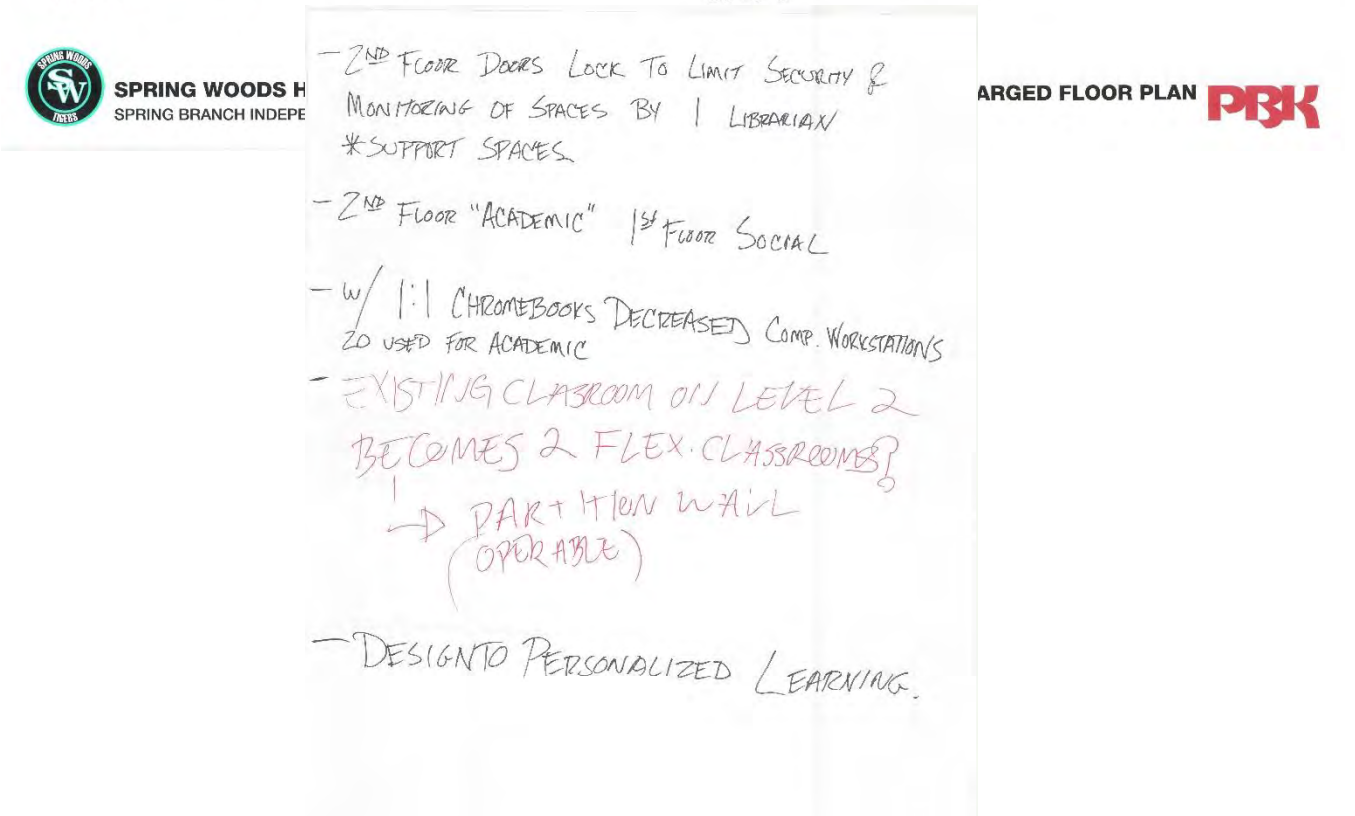 SPRING WOODS
SW
TIGERS
SPRING WOODS H
SPRING BRANCH INDEPE
ARGED FLOOR PLAN
PBK
- 2ND FLOOR DOORS LOCK TO LIMIT SECURITY &
MONITORING OF SPACES BY 1 LIBRARIAN
*SUPPORT SPACES
- 2ND FLOOR "ACADEMIC" 1ST FLOOR SOCIAL
- W/ 1:1 CHROMEBOOKS DECREASED COMP. WORKSTATIONS
20 USED FOR ACADEMIC
- EXISTING CLASROOM ON LEVEL 2
BECOMES 2 FLEX. CLASSROOMS?
→ PARTITION WALL
(OPERABLE)
- DESIGN TO PERSONALIZED LEARNING.